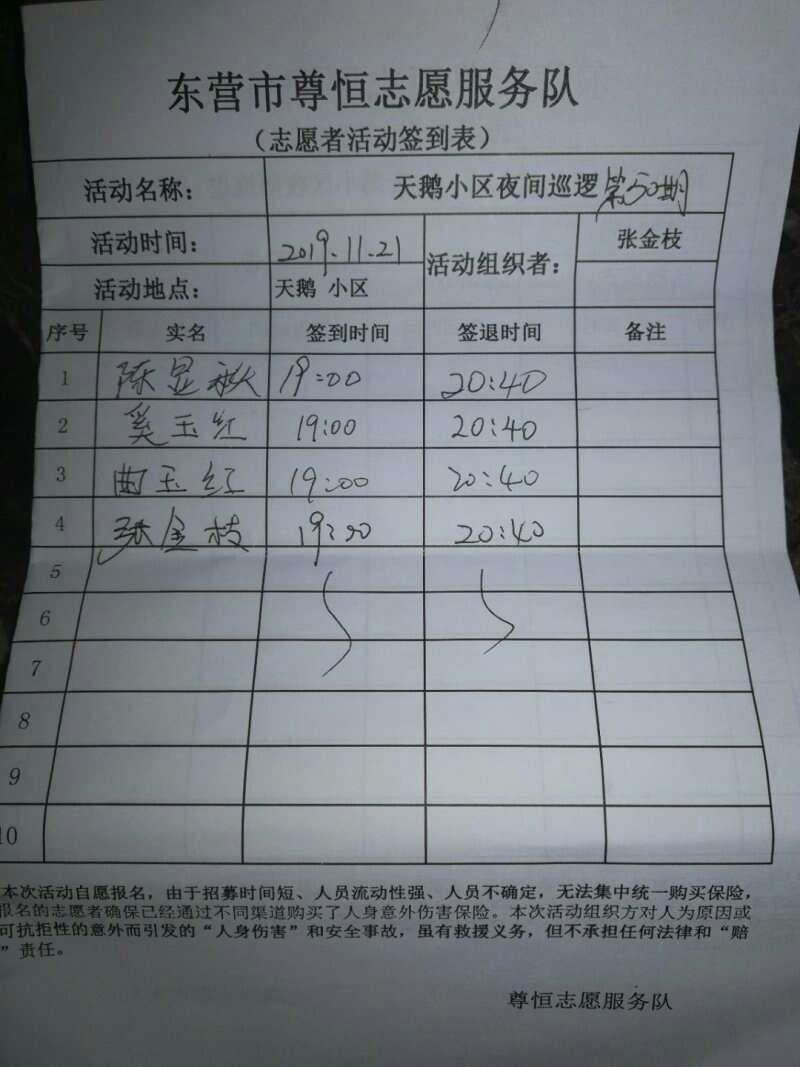 东营市尊恒志愿服务队
(志愿者活动签到表)
活动名称: 天鹅小区夜间巡逻第50期
活动时间: 2019.11.21 活动组织者: 张金枝
活动地点: 天鹅 小区
序号 实名 签到时间 签退时间 备注
1 陈显秋 19:00 20:40
2 奚玉红 19:00 20:40
3 曲玉红 19:00 20:40
4 张金枝 19:00 20:40
5
6
7
8
9
10
本次活动自愿报名，由于招募时间短、人员流动性强、人员不确定，无法集中统一购买保险，
报名的志愿者确保已经通过不同渠道购买了人身意外伤害保险。本次活动组织方对人为原因或
可抗拒性的意外而引发的“人身伤害”和安全事故，虽有救援义务，但不承担任何法律和“赔
”责任。
尊恒志愿服务队